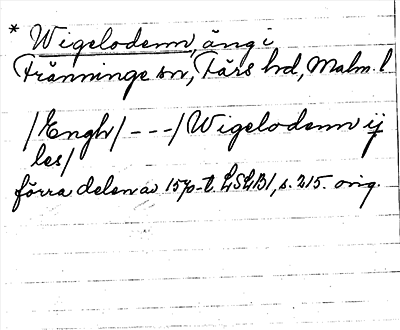 * Wigelodenn, äng i
Fränninge sn, Färs hd, Malm. l
/Engh/ - - -/ Wigelodenn ij
les/
förra delen av 15/0-t. LSLB1, s. 215. orig.